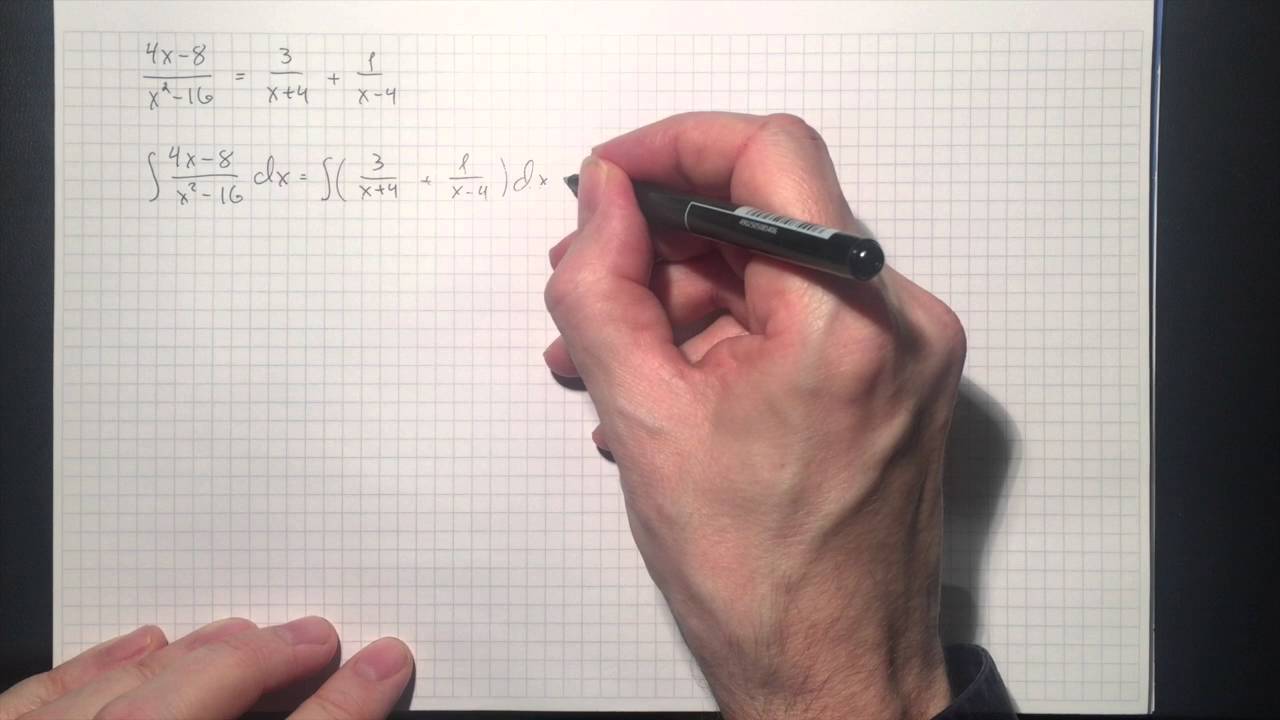 4x-8/x²-16 = 3/x+4 + 1/x-4
∫ 4x-8/x²-16 dx = ∫( 3/x+4 + 1/x-4 ) dx